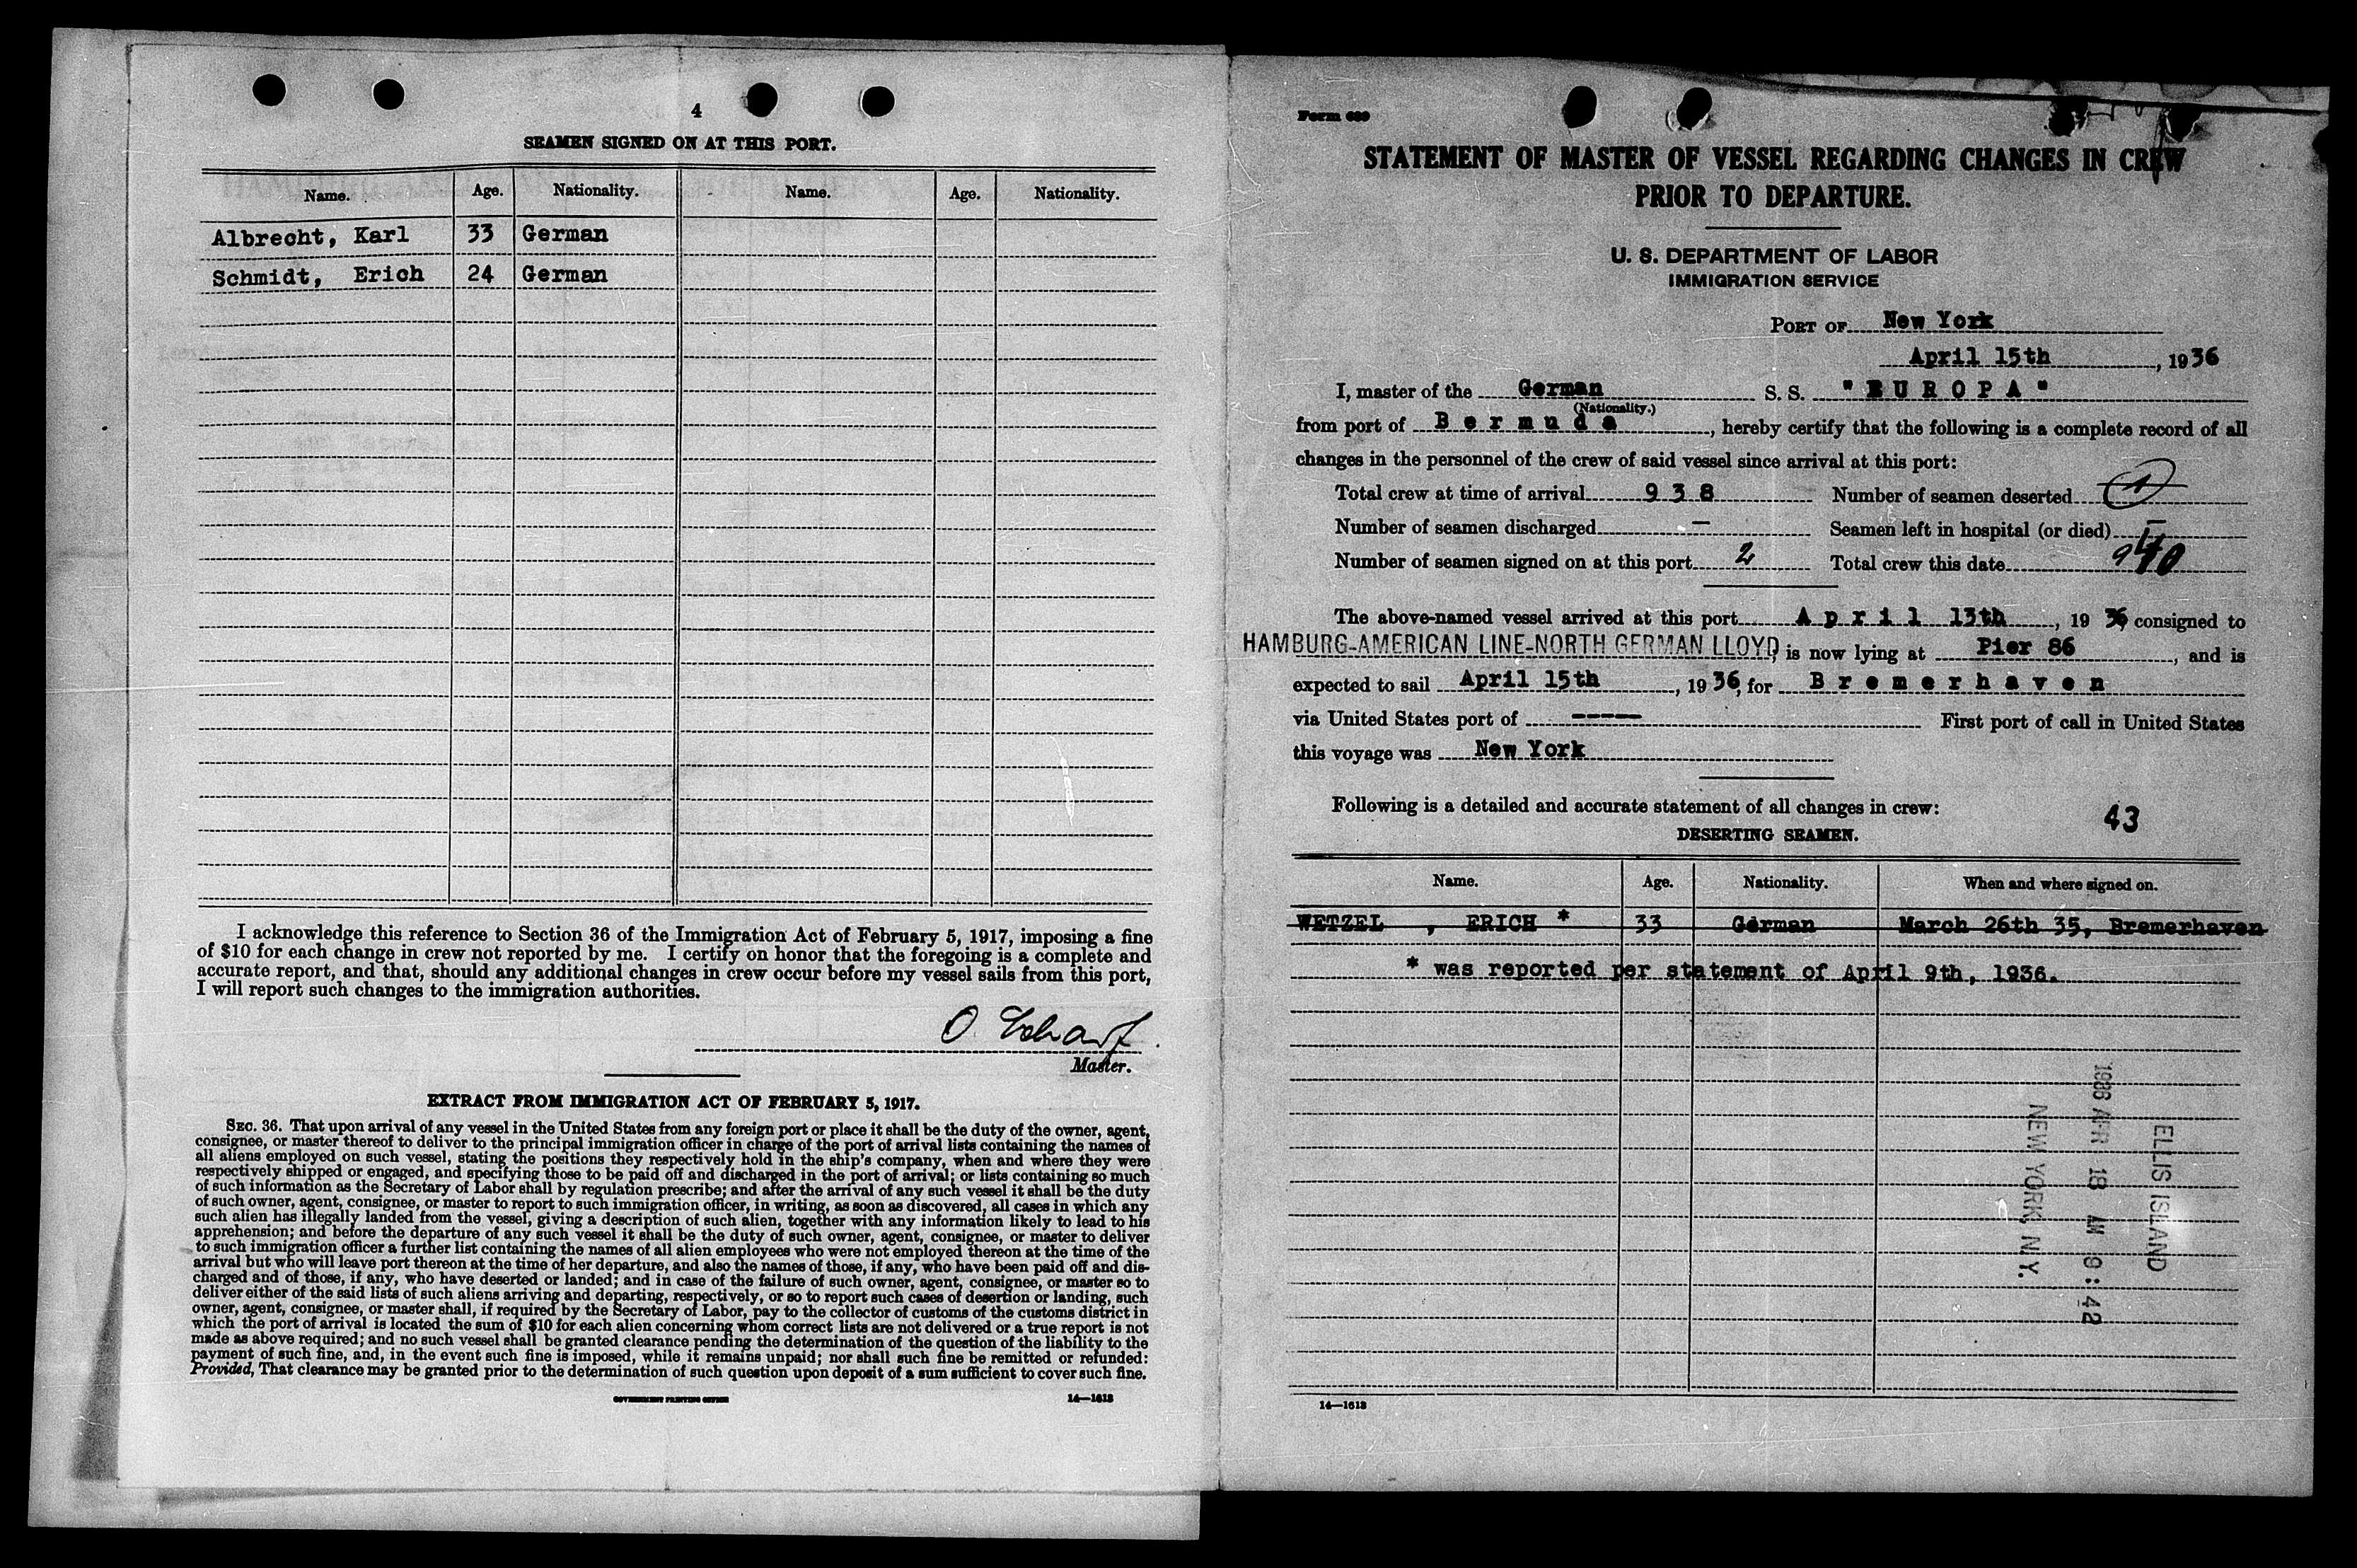 4
SEAMEN SIGNED ON AT THIS PORT.
Name. Age. Nationality. Name. Age. Nationality.
Albrecht, Karl 33 German
Schmidt, Erich 24 German
I acknowledge this reference to Section 36 of the Immigration Act of February 5, 1917, imposing a fine
of $10 for each change in crew not reported by me. I certify on honor that the foregoing is a complete and
accurate report, and that, should any additional changes in crew occur before my vessel sails from this port,
I will report such changes to the immigration authorities.
O. Scharf
Master.
EXTRACT FROM IMMIGRATION ACT OF FEBRUARY 5, 1917.
SEC. 36. That upon arrival of any vessel in the United States from any foreign port or place it shall be the duty of the owner, agent,
consignee, or master thereof to deliver to the principal immigration officer in charge of the port of arrival lists containing the names of
all aliens employed on such vessel, stating the positions they respectively hold in the ship's company, when and where they were
respectively shipped or engaged, and specifying those to be paid off and discharged in the port of arrival; or lists containing so much
of such information as the Secretary of Labor shall by regulation prescribe; and after the arrival of any such vessel it shall be the duty
of such owner, agent, consignee, or master to report to such immigration officer, in writing, as soon as discovered, all cases in which any
such alien has illegally landed from the vessel, giving a description of such alien, together with any information likely to lead to his
apprehension; and before the departure of any such vessel it shall be the duty of such owner, agent, consignee, or master to deliver
to such immigration officer a further list containing the names of all alien employees who were not employed thereon at the time of the
arrival but who will leave port thereon at the time of her departure, and also the names of those, if any, who have been paid off and dis-
charged and of those, if any, who have deserted or landed; and in case of the failure of such owner, agent, consignee, or master so to
deliver either of the said lists of such aliens arriving and departing, respectively, or so to report such cases of desertion or landing, such
owner, agent, consignee, or master shall, if required by the Secretary of Labor, pay to the collector of customs of the customs district in
which the port of arrival is located the sum of $10 for each alien concerning whom correct lists are not delivered or a true report is not
made as above required; and no such vessel shall be granted clearance pending the determination of the question of the liability to the
payment of such fine, and, in the event such fine is imposed, while it remains unpaid; nor shall such fine be remitted or refunded:
Provided, That clearance may be granted prior to the determination of such question upon deposit of a sum sufficient to cover such fine.
GOVERNMENT PRINTING OFFICE 14—1613
Form 689
STATEMENT OF MASTER OF VESSEL REGARDING CHANGES IN CREW
PRIOR TO DEPARTURE.
U. S. DEPARTMENT OF LABOR
IMMIGRATION SERVICE
PORT OF New York
April 15th, 1936
I, master of the German S. S. "EUROPA"
(Nationality.)
from port of Bermuda, hereby certify that the following is a complete record of all
changes in the personnel of the crew of said vessel since arrival at this port:
Total crew at time of arrival 938 Number of seamen deserted 1
Number of seamen discharged — Seamen left in hospital (or died) —
Number of seamen signed on at this port 2 Total crew this date 940
The above-named vessel arrived at this port April 13th, 1936, consigned to
HAMBURG-AMERICAN LINE-NORTH GERMAN LLOYD, is now lying at Pier 86, and is
expected to sail April 15th, 1936, for Bremerhaven
via United States port of ---- First port of call in United States
this voyage was New York
Following is a detailed and accurate statement of all changes in crew:
43
DESERTING SEAMEN.
Name. Age. Nationality. When and where signed on.
WETZEL, ERICH * 33 German March 26th 35, Bremerhaven
* was reported per statement of April 9th, 1936.
ELLIS ISLAND
1936 APR 18 AM 9:42
NEW YORK, N.Y.
14—1613